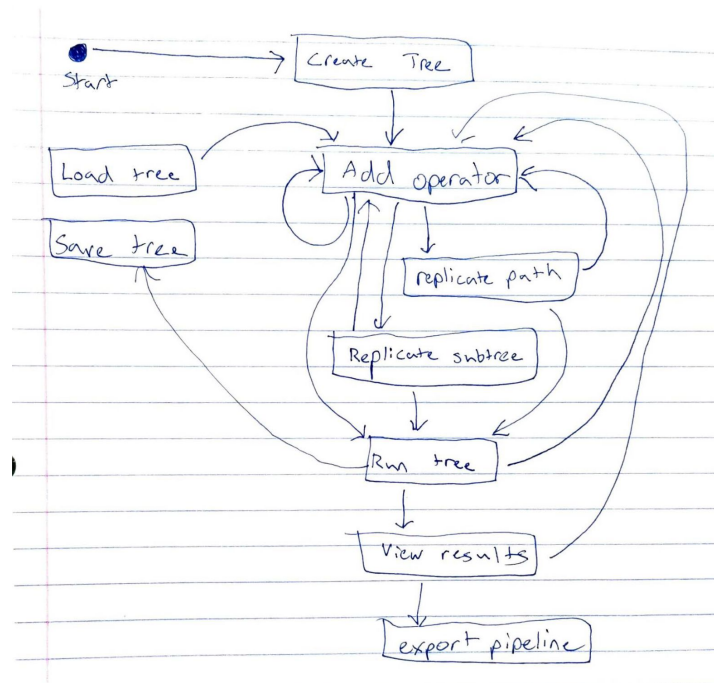 Start
Create Tree
Load tree
Add operator
Save tree
replicate path
Replicate subtree
Run tree
View results
export pipeline